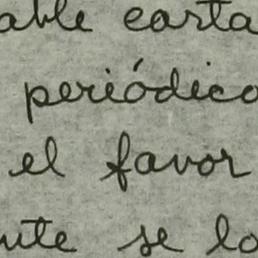 able carta
periódico
el favor
nte se lo